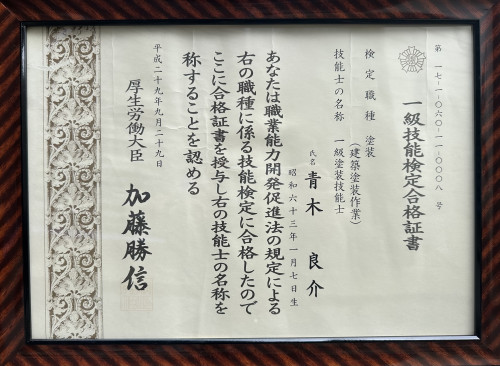 第 一七-一-〇六〇-一一-〇〇〇八 号
一級技能検定合格証書
検定職種 塗装
(建築塗装作業)
技能士の名称 一級塗装技能士
氏名 青木 良介
昭和六十三年一月七日生
あなたは職業能力開発促進法の規定による
右の職種に係る技能検定に合格したので
ここに合格証書を授与し右の技能士の名称を
称することを認める
平成二十九年九月二十九日
厚生労働大臣 加藤勝信